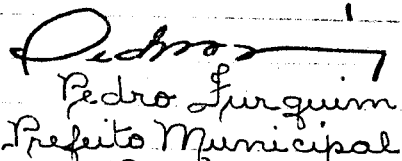 Pedro Furquim
Prefeito Municipal